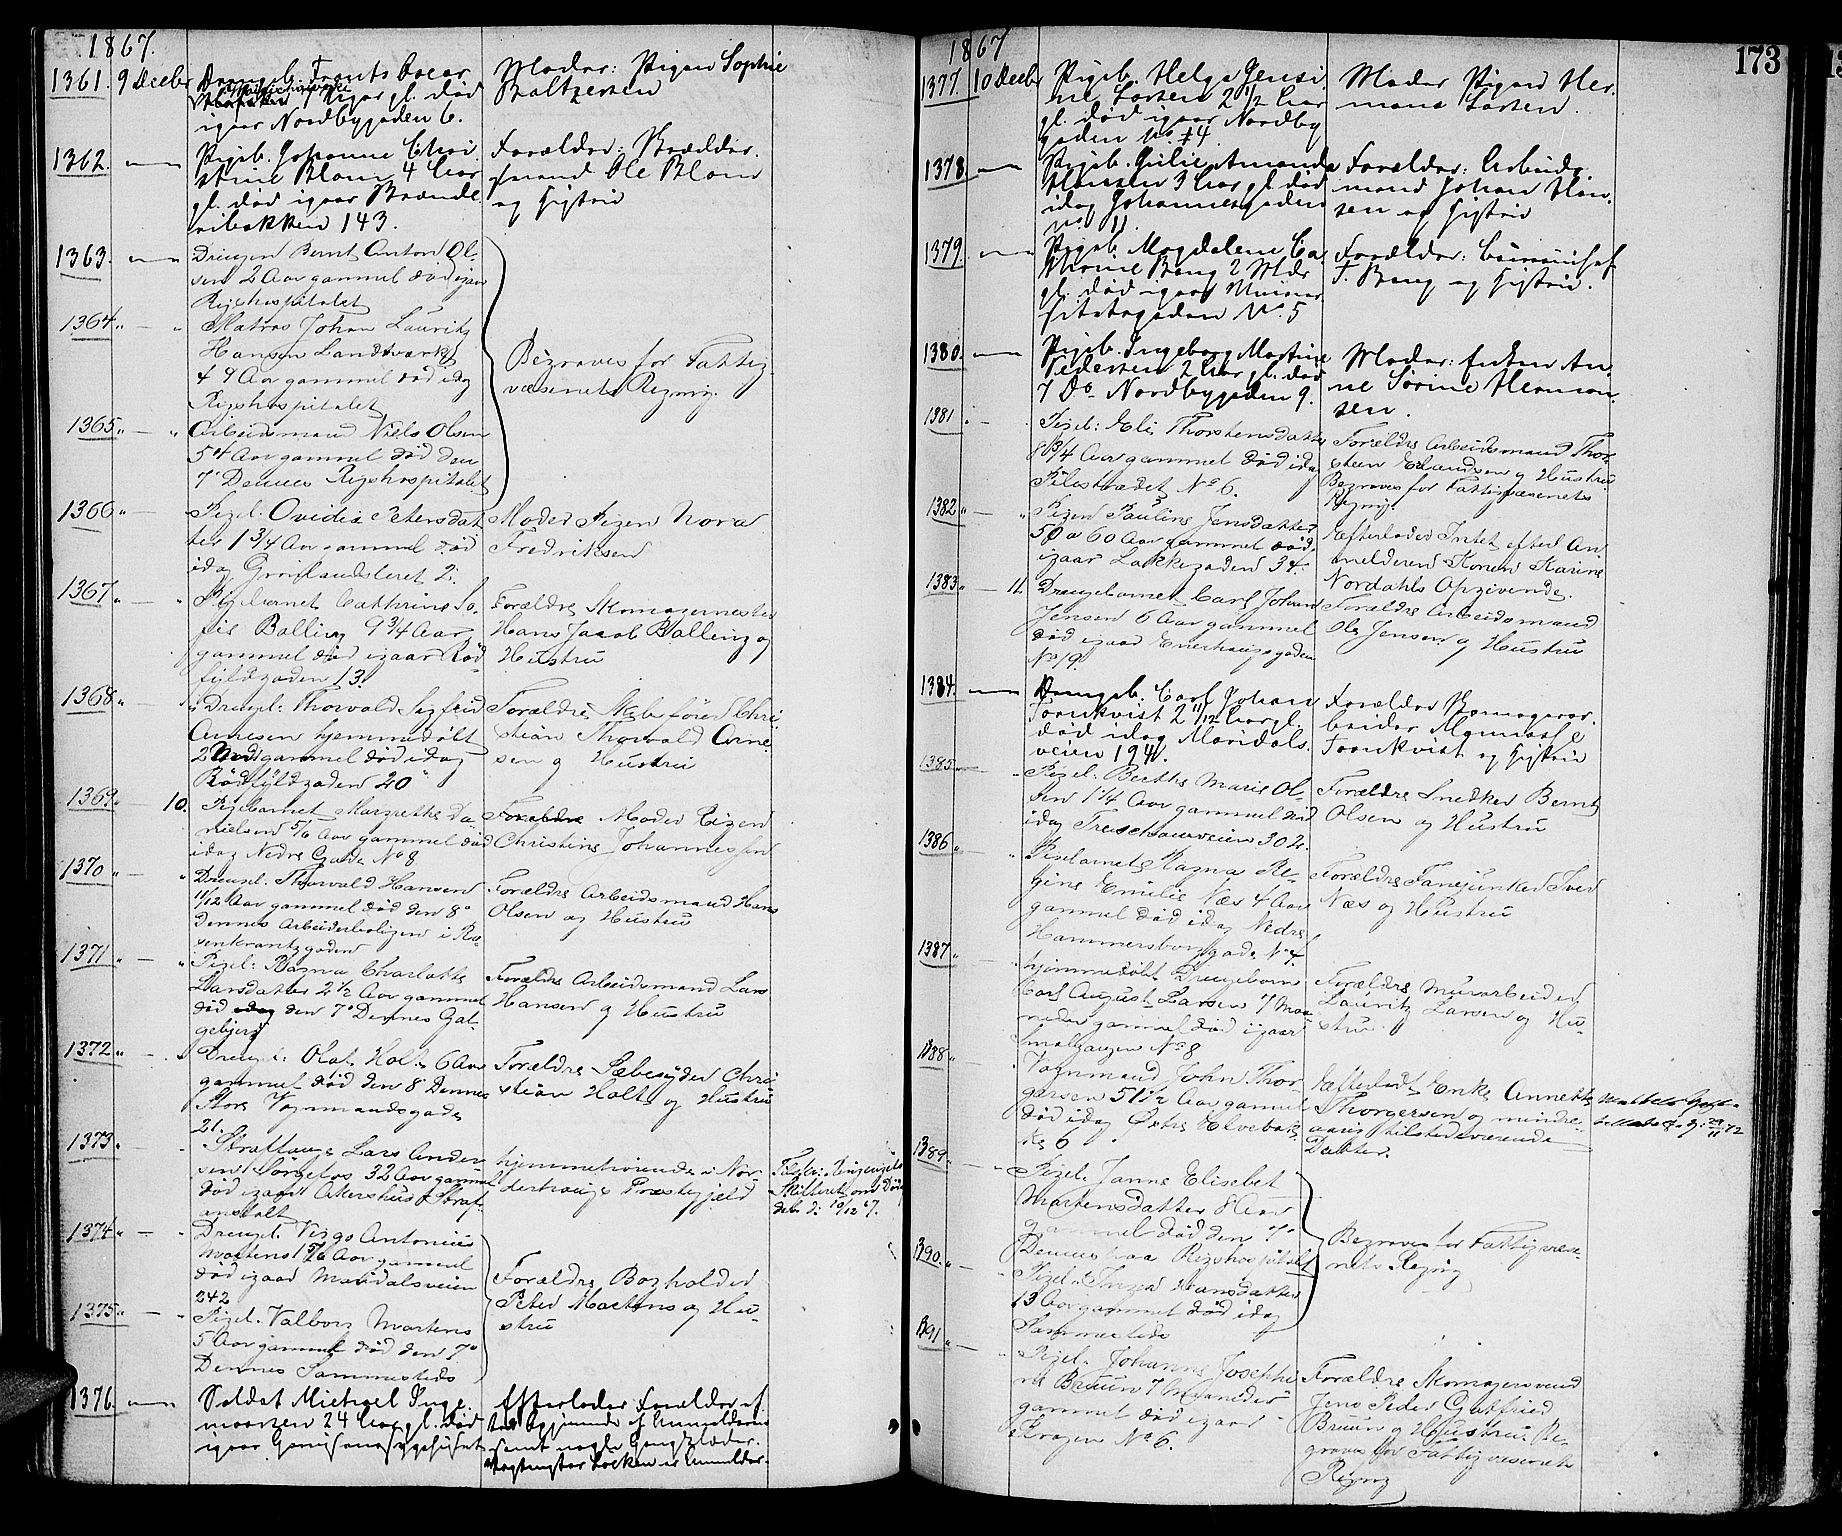 1867.
1361. 9 Decbr Drengeb. Frants Oscar
gl. død
igaar Nordbygaden 6.
Moder: Pigen Sophie
Baltzersen
1362. Pigeb. Johanne Chri
stine Blom 4 Aar
gl. død igaar Brænde
ribakken 143.
Forældre:
mand Ole Blom
og Hustru
1363. Drengen Bernt Anton Ol-
sen 2 Aar gammel død igaar
Rigshospitalet
1364 " Matros Johan Lauritz
Hansen Landtværk
49 Aar gammel død idag
Rigshospitalet
1365 " Arbeidsmand Niels Olsen
54 Aar gammel død den
7de Dennes Rigshospitalet
Begraves for Fattig-
væsenets Regning.
1366 " Pigeb: Ovidia Petersdat
ter 1 3/4 Aar gammel død
idag Grønlandsleret 2.
Moder Pigen Nora
Fredriksen
1367 " Pigebarnet Cathrine So-
fie Balling 9 3/4 Aar
gammel død igaar Rød-
fyldgaden 13.
Forældre Skomagermester
Hans Jacob Balling og
Hustru
1368 " Drengeb: Thorvald Sigfrid
Arnesen hjemmedøbt
gammel død idag
Rødfyldgaden 20
Forældre Skibsfører Chri
stian Thorvald Arne
sen og Hustru
1369 " 10. Pigebarnet Margrethe Da
nielsen 5/6 Aar gammel død
idag Nedre Gade No 8
Forældre Moder Pigen
Christine Johannessen
1370 " Drengeb. Thorvald Hansen
11/12 Aar gammel død den 8de
Dennes Arbeiderboligen i Ro
senkrantzgaden
Forældre Arbeidsmand Hans
Olsen og Hustru
1371 " Pigeb: Ragna Charlotte
Larsdatter 2 1/2 Aar gammel
død idag den 7de Dennes Gal-
gebjerg
Forældre Arbeidsmand Lars
Hansen og Hustru
1372 " Drengeb: Olaf Holt 6 Aar
gammel død den 8de Dennes
Store Vognmandsgade
21.
Forældre Sæbesyder Chri
stian Holt og Hustru
1373 " Straffange Lars Ander
sen Sørgefos 32 Aar gammel
død igaar Akershus Straf-
anstalt
hjemmehørende i Nor
derhougs Præstegjeld
Skifteret om Døds
10/12 67.
1374 " Drengeb. Viggo Antonius
Martens 1 5/6 Aar gammel
død igaar Maridalsveien
242
1375 " Pigeb. Valborg Martens
5 Aar gammel død den 7de
Dennes Sammesteds
Forældre Bogholder
Peter Martens og Hu-
stru
1376. Soldat Michael Inge
24 Aar gl. død
igaar Garnisonssygehuset
Efterlader Forældre
samt nogle Gangklæder.
1867
173
1377. 10 Decbr Pigeb. Helga Jensi
ne Larsen 2 1/2 Aar
gl. død igaar Nordby
gaden No. 14.
Moder Pigen Her-
mana Larsen.
1378. Pigeb. Julie Amanda
Hansen 3 Aar gl. død
idag Johannesgaden
No. 11.
Forældre: Arbeids
mand Johan Han-
sen og Hustru
1379. Pigeb. Magdalene Ca
thrine Bang 2 Mdr
gl. død igaar Univer
sitetsgaden No. 5
Forældre:
F. Bang og Hustru.
1380. Pigeb. Ingeborg Martine
Pedersen 2 Aar gl. død
7 Ds Nordbygaden 9.
Moder: Enken An-
ne Sørine Herman-
sen.
1381 . Pigeb: Eli Thorstensdatter
8 3/4 Aar gammel død idag
Pilestrædet No 6.
Forældre Arbeidsmand Thor-
steen Erlandsen og Hustru
Begraves for Fattigvæsenets
Regning.
1382 " Pigen Pauline Jensdatter
50 a 60 Aar gammel død
igaar Lakkegaden 34.
Efterlader Intet efter An
melderen Konen Karine
Nordahls Opgivende.
1383 " 11. Drengebarnet Carl Johan
Jensen 6 Aar gammel
død igaar Enerhougsgaden
No 19.
Forældre Arbeidsmand
Ole Jensen og Hustru
1384. Drengeb. Carl Johan
Tornkvist 2 11/12 Aar gl.
død idag Maridals-
veien 194.
Forældre
beider
Tornkvist og Hustru
1385 Pigeb: Berthe Marie Ol-
sen 1 1/4 Aar gammel død
idag Treschowveien 302.
Forældre Snedker Bernt
Olsen og Hustru
1386 " Pigebarnet Ragna Re-
gine Emilie Næs 4 Aar
gammel død idag Nedre
Hammersborggade No 4.
Forældre Fanejunker Iver
Næs og Hustru
1387 " hjemmedøbt Drengebarn
Carl August Larsen 7 Maa
neder gammel død igaar
Smalgangen No 8
Forældre Murarbeider
Lauritz Larsen og Hu-
stru.
1388 " Vognmand John Thor-
gersen 51 1/2 Aar gammel
død idag Østre Elvebak-
ke 6
Efterladt Enke Annette
Thorgersen og mindre-
aarig tilstedeværende
Datter.
1389 " Pigeb. Janne Elisebet
Martensdatter 8 Aar
gammel død den 7de
Dennes paa Rigshospitalet
1390 " Pigeb. Thea Hansdatter
13 Aar gammel død idag
Sammesteds
Begraves for Fattigvæse-
nets Regning
1391 " Pigeb. Johanne Josephi
ne Bruun 7 Maaneder
gammel død igaar
Krogen No 6.
Forældre Skomagersvend
Jens Peder Gutfried
Bruun og Hustru. Be-
graves for Fattigvæsenets
Regning